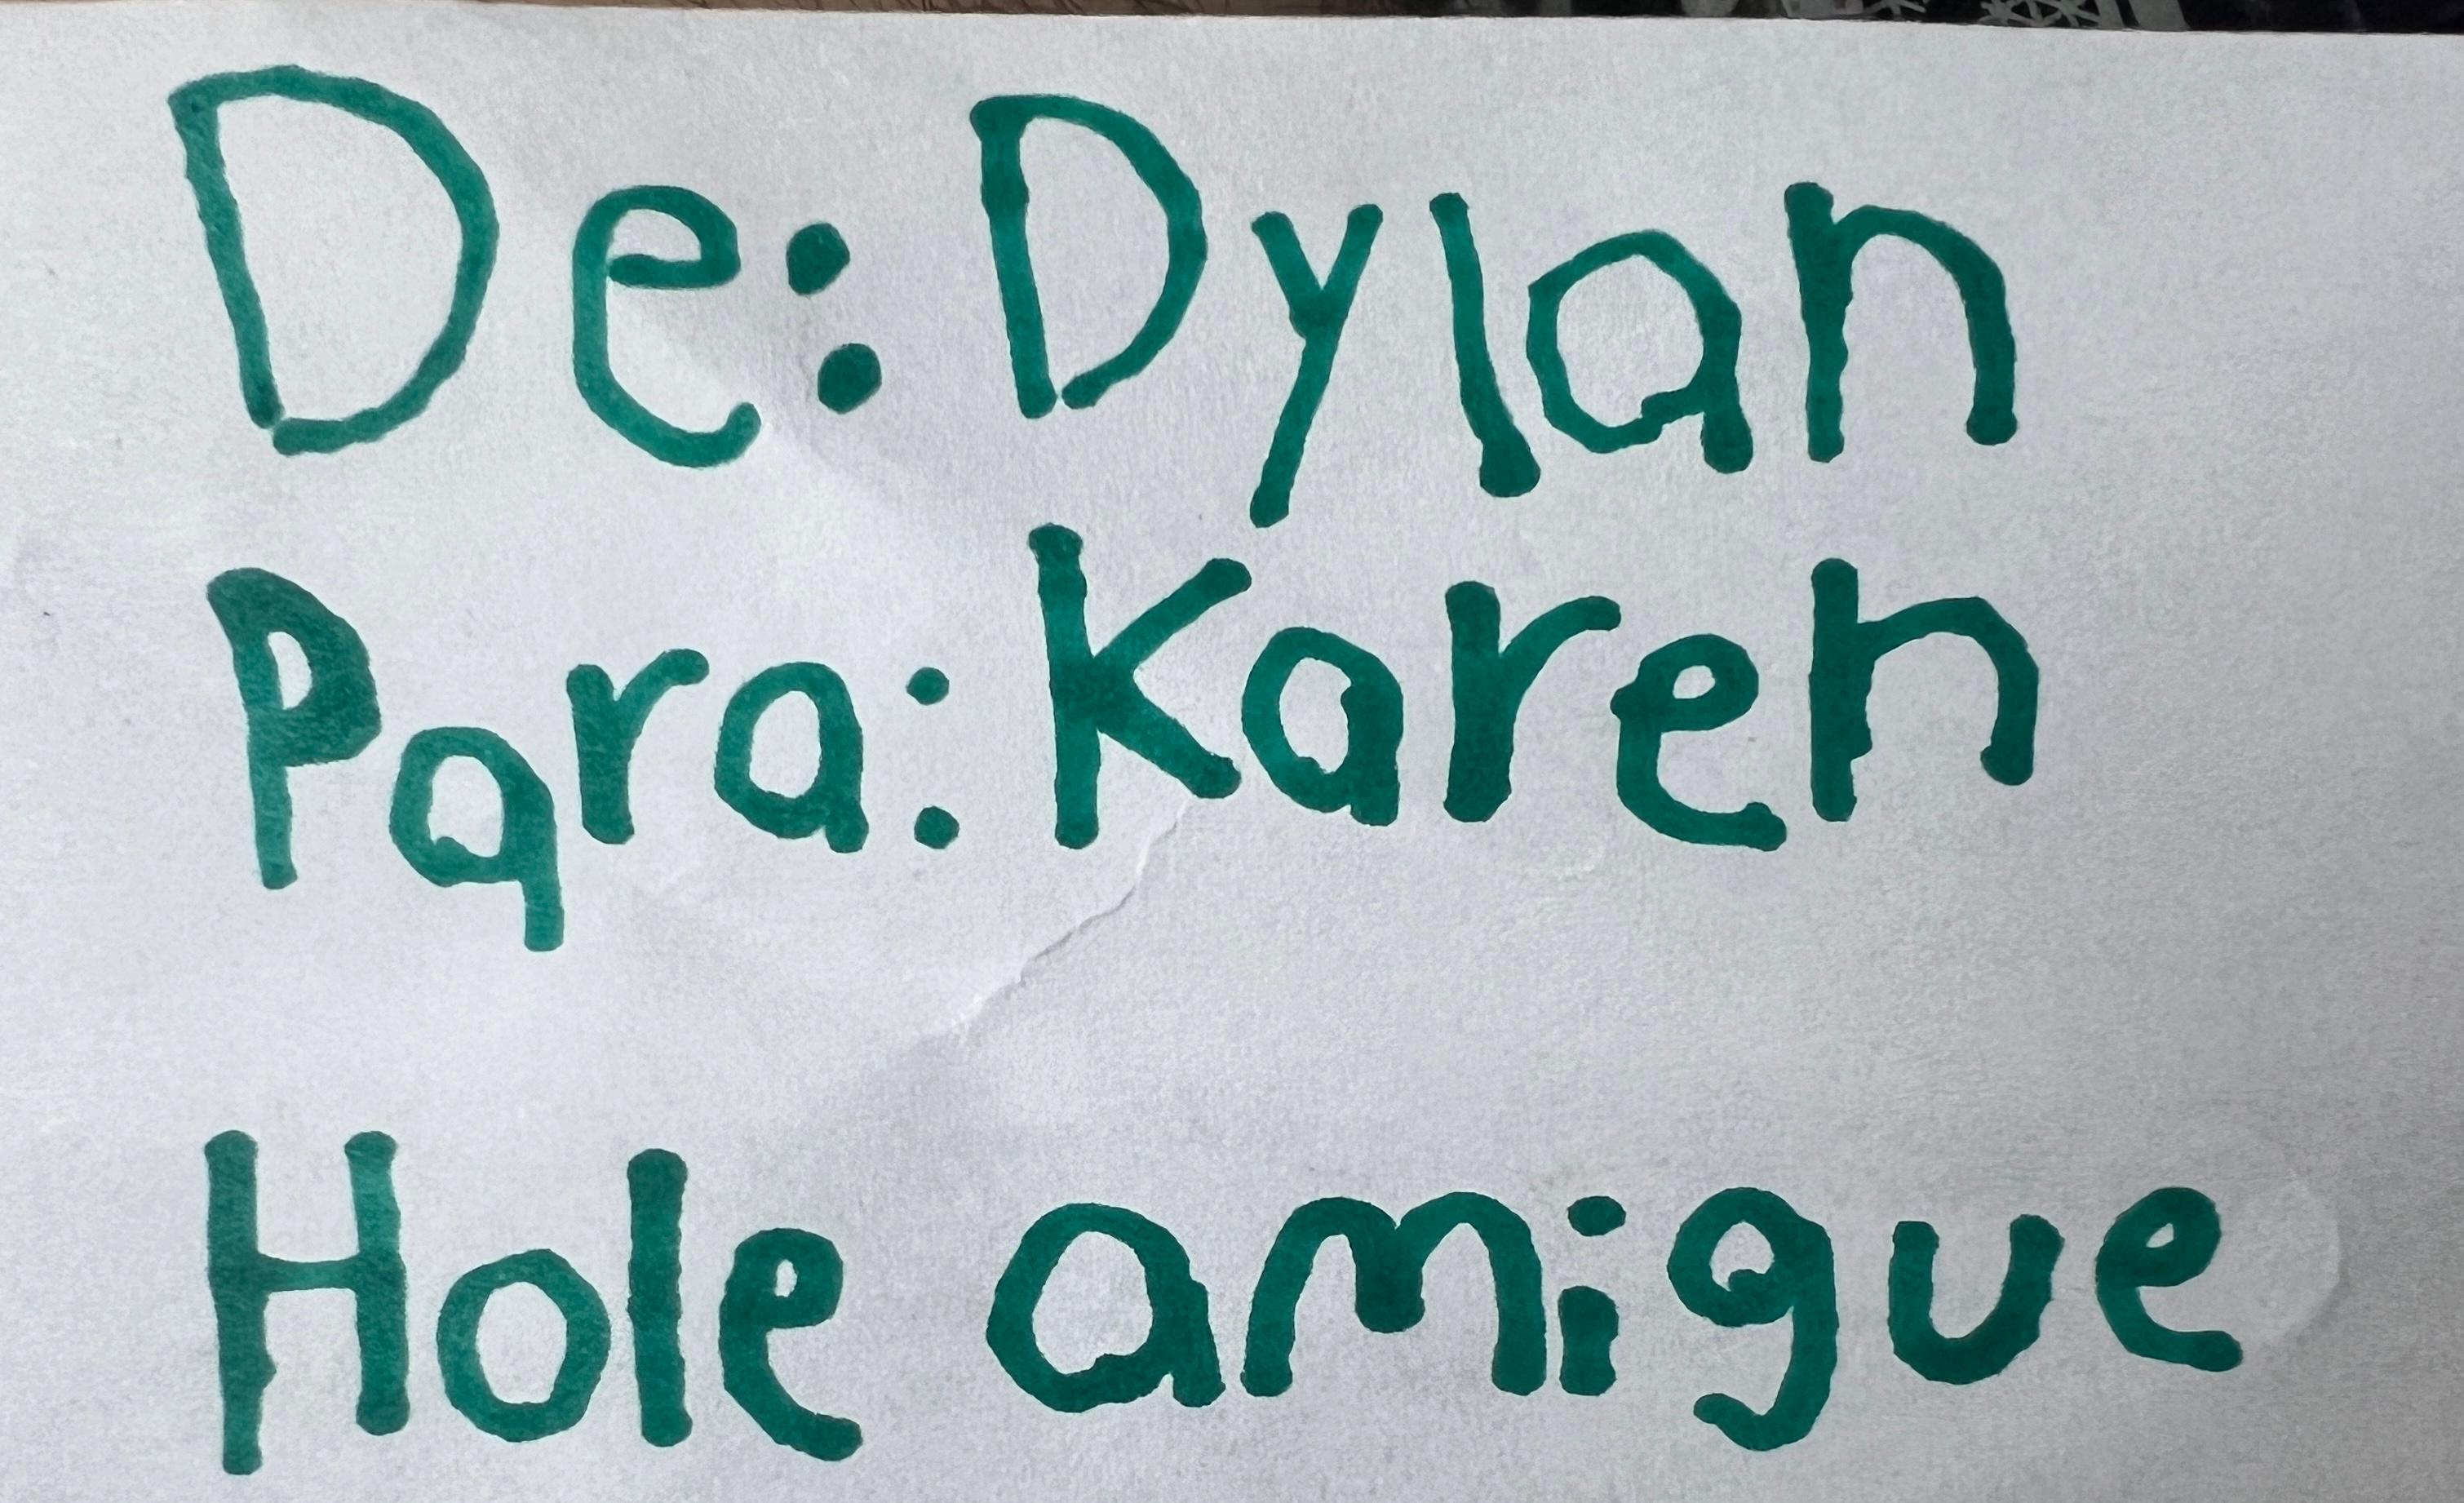 De: Dylan
Para: Karen
Hole amigue